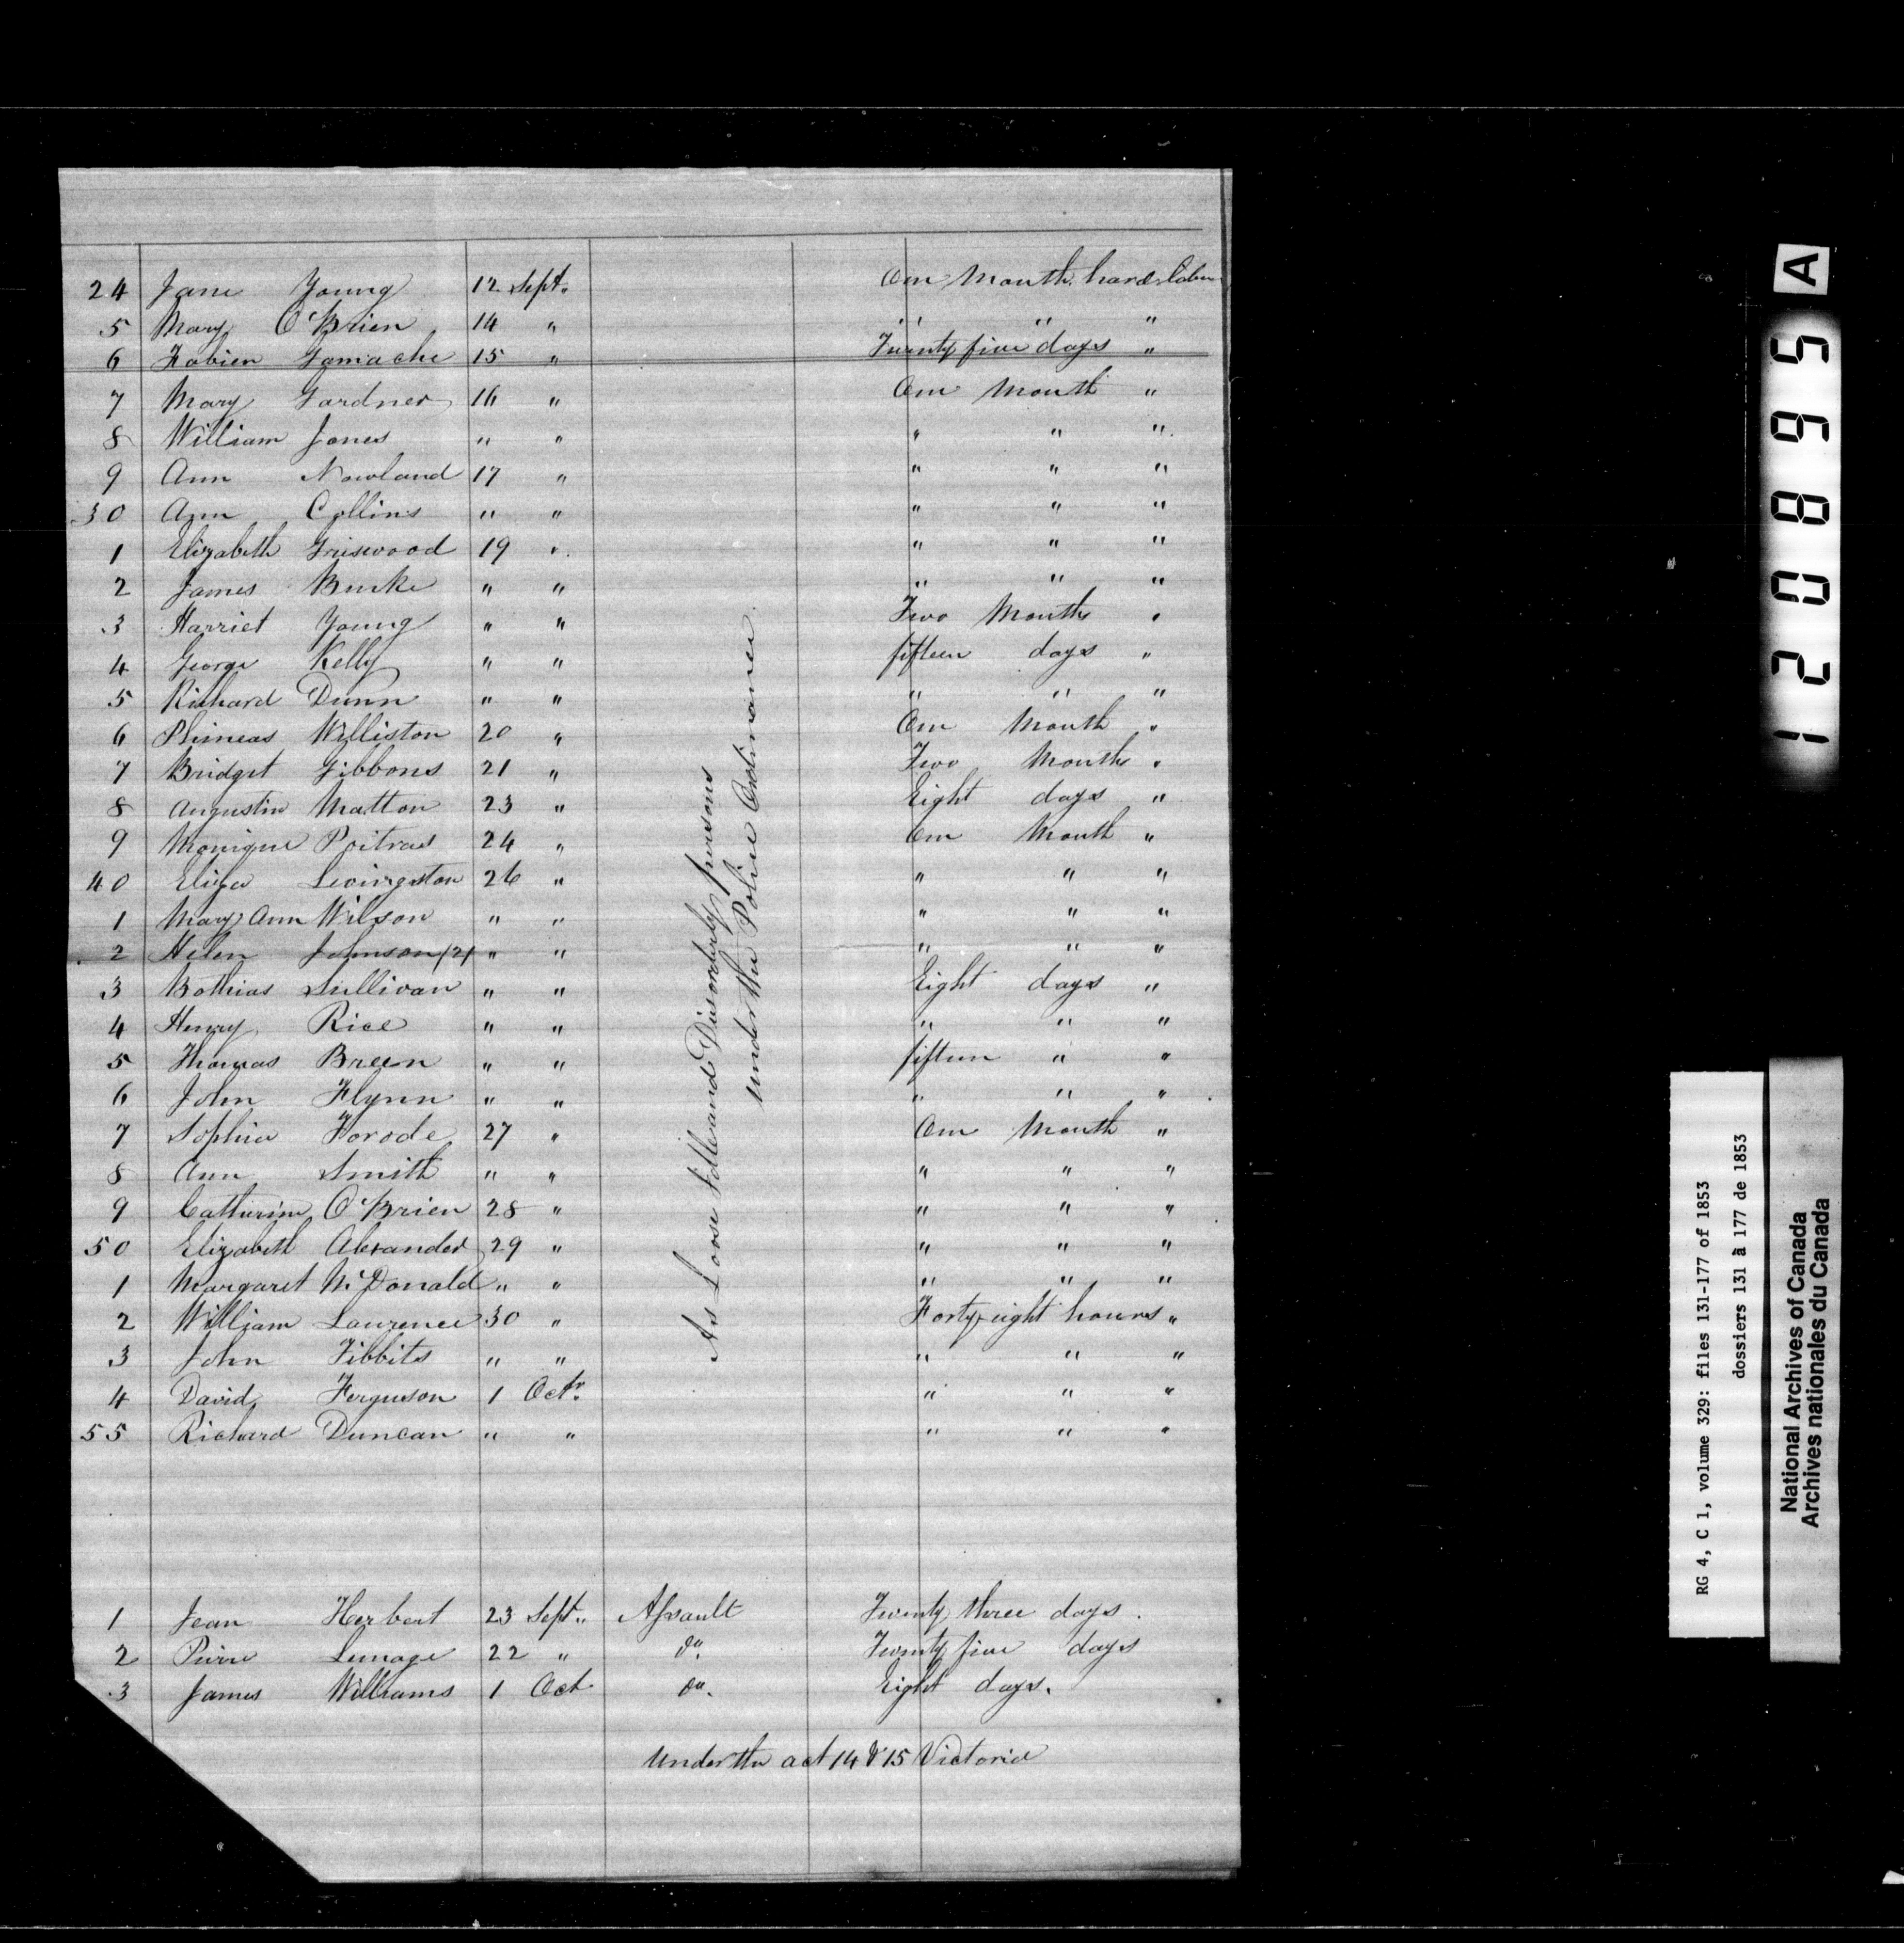 24 Jane Young 12 Sept. One Month hard labour
5 Mary O'Brien 14 " " " "
6 Fabien Gamache 15 " Twenty five days "
7 Mary Gardner 16 " One Month "
8 William Jones " " " " "
9 Ann Nowland 17 " " " "
30 Ann Collins " " " " "
1 Elizabeth Griswood 19 " " " "
2 James Burke " " " " "
3 Harriet Young " " Two Months "
4 George Kelly " " fifteen days "
5 Richard Dunn " " " " "
6 Phineas Williston 20 " One Month "
7 Bridget Gibbons 21 " Two Months "
8 Augustin Matton 23 " Eight days "
9 Monique Poitras 24 " One Month "
40 Eliza Levingston 26 " " " "
1 Mary Ann Wilson " " " " "
2 Helen Johnson (2) " " " " "
3 Bothias Sullivan " " Eight days "
4 Henry Rice " " " " "
5 Thomas Breen " " fifteen " "
6 John Flynn " " " " "
7 Sophia Forode 27 " One Month "
8 Ann Smith " " " " "
9 Catherine O'Brien 28 " " " "
50 Elizabeth Alexander 29 " " " "
1 Margaret McDonald " " " " "
2 William Laurence 30 " Forty eight hours "
3 John Tibbits " " " " "
4 David Ferguson 1 Octr. " " "
55 Richard Duncan " " " " "
As Loose Idle and Disorderly persons
under the Police Ordinance
1 Jean Herbert 23 Sept. Assault Twenty three days.
2 Pierre Lemage 22 " do. Twenty five days
3 James Williams 1 Oct do. Eight days.
Under the act 14 & 15 Victoria
A
120895
RG 4, C 1, volume 329: files 131-177 of 1853
dossiers 131 à 177 de 1853
National Archives of Canada
Archives nationales du Canada